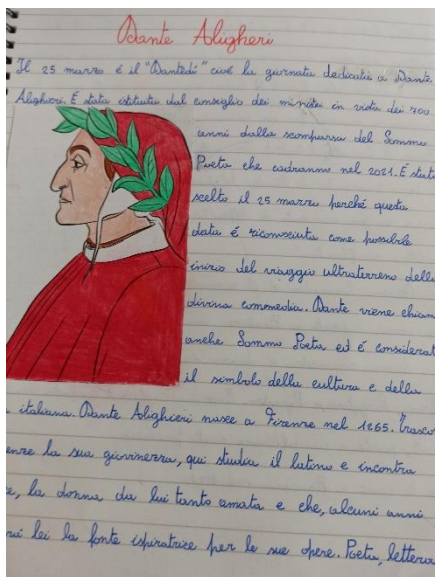 Dante Aligheri
Il 25 marzo é il "Dantedí" cioé la giornata dedicata a Dante
Alighieri. É stata istituita dal consiglio dei ministri in vista dei 700
anni dalla scomparsa del Sommo
Poeta che cadranno nel 2021. É stato
scelto il 25 marzo perché questa
data é riconosciuta come possibile
inizio del viaggio ultraterreno della
divina commedia. Dante viene chiam
anche Sommo Poeta ed é considerat
il simbolo della cultura e della
italiana. Dante Alighieri nasce a Firenze nel 1265. Trasco
enze la sua giovinezza, qui studia il latino e incontra
ce, la donna da lui tanto amata e che, alcuni anni
rà lei la fonte ispiratrice per le sue opere. Poeta, lettera